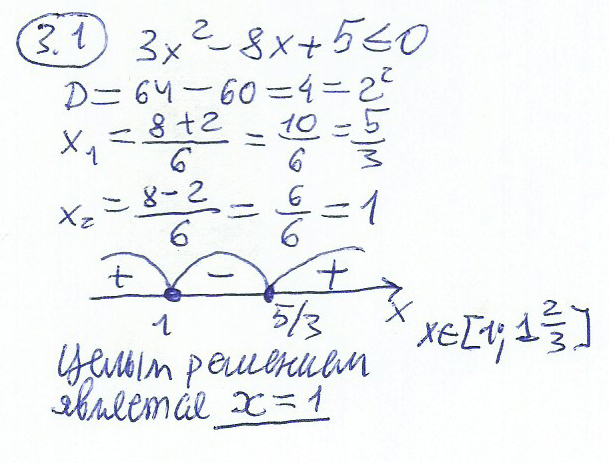 3.1 3x² - 8x + 5 ≤ 0
D = 64 - 60 = 4 = 2²
x₁ = (8+2)/6 = 10/6 = 5/3
x₂ = (8-2)/6 = 6/6 = 1
+ - +
1 5/3 x x∈[1; 1 2/3]
Целым решением
является x = 1